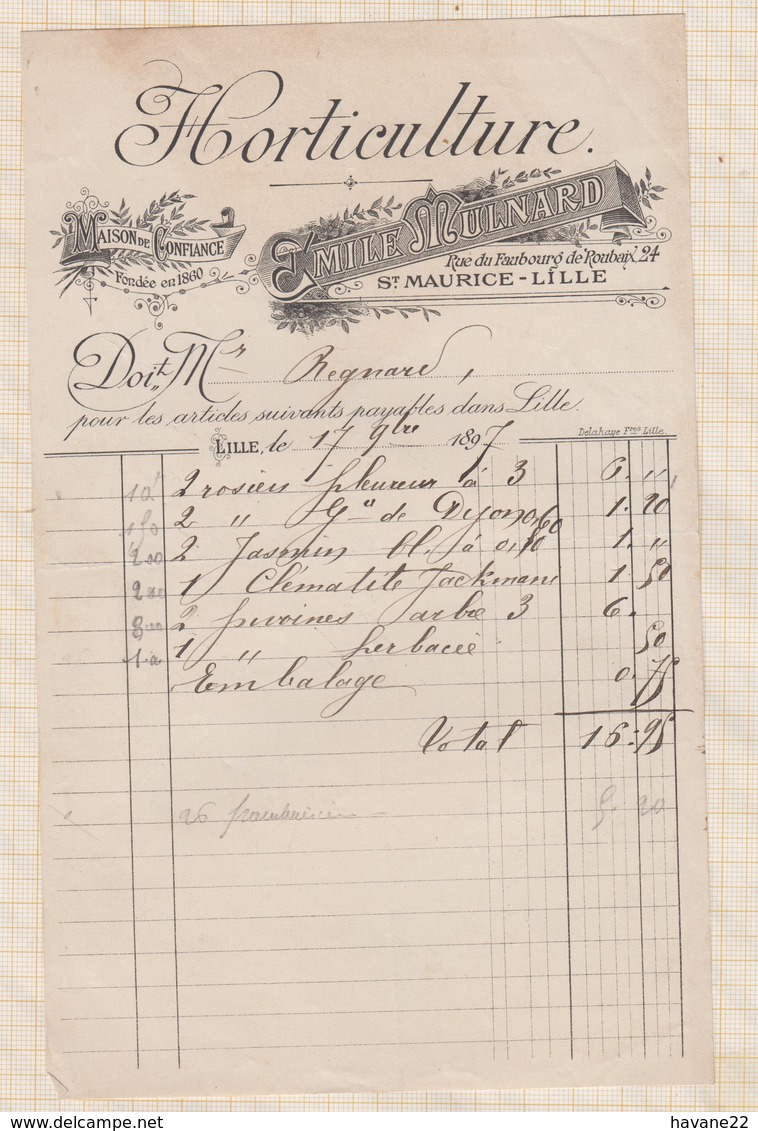 Horticulture.
MAISON DE CONFIANCE
Fondée en 1860
EMILE MULNARD
Rue du Faubourg de Roubaix, 24
ST MAURICE-LILLE
Doit Mr Regnard,
pour les articles suivants payables dans Lille.
LILLE, le 17 9bre 1897
Delahaye Fres Lille
2 rosiers pleureur à 3 6. "
2 " Gre de Dijon 0,60 1. 20
2 Jasmin bl. à 0,50 1. "
1 Clématite Jackmani 1. 50
2 pivoines arbre 3 6.
1 " herbacée 50
Embalage 0. 75
Total 16.95
26 5. 20
havane22
www.delcampe.net